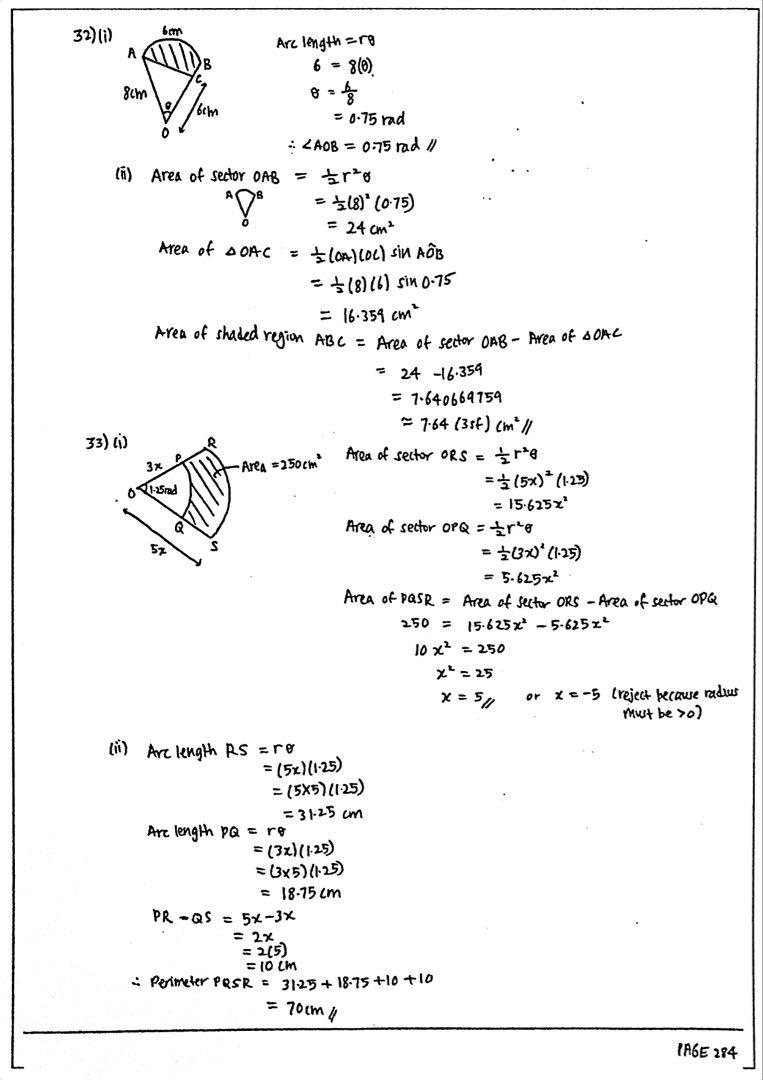 32)(i)
6cm
A
B
C
8cm
θ
6cm
O
Arc length = rθ
6 = 8(θ)
θ = 6/8
= 0.75 rad
∴ ∠AOB = 0.75 rad //
(ii) Area of sector OAB = ½r²θ
A B
O
= ½(8)²(0.75)
= 24 cm²
Area of △OAC = ½(OA)(OC) sin AÔB
= ½(8)(6) sin 0.75
= 16.359 cm²
Area of shaded region ABC = Area of sector OAB - Area of △OAC
= 24 - 16.359
= 7.640669759
≈ 7.64 (3sf) cm² //
33)(i)
R
P
3x
Area = 250cm²
O
1.25rad
Q
S
5x
Area of sector ORS = ½r²θ
= ½(5x)²(1.25)
= 15.625x²
Area of sector OPQ = ½r²θ
= ½(3x)²(1.25)
= 5.625x²
Area of PQSR = Area of sector ORS - Area of sector OPQ
250 = 15.625x² - 5.625x²
10x² = 250
x² = 25
x = 5 // or x = -5 (reject because radius
must be >0)
(ii) Arc length RS = rθ
= (5x)(1.25)
= (5×5)(1.25)
= 31.25 cm
Arc length PQ = rθ
= (3x)(1.25)
= (3×5)(1.25)
= 18.75 cm
PR - QS = 5x-3x
= 2x
= 2(5)
= 10 cm
∴ Perimeter PQSR = 31.25 + 18.75 + 10 + 10
= 70cm //
PAGE 284